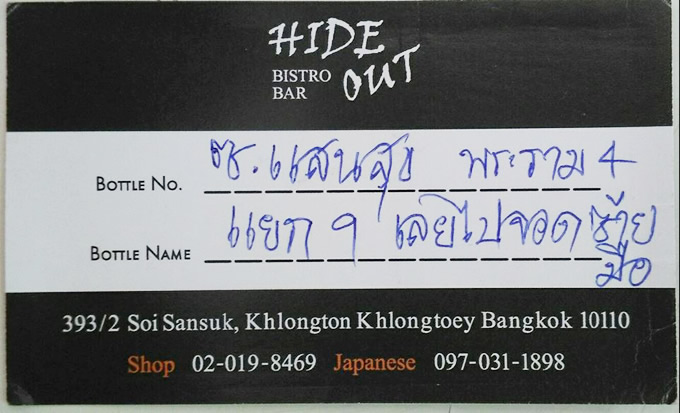 HIDE
BISTRO
BAR
OUT
BOTTLE NO. ซ.แสนสุข พระราม 4
BOTTLE NAME แยก ๆ เลยไปจอดซ้าย
มือ
393/2 Soi Sansuk, Khlongton Khlongtoey Bangkok 10110
Shop 02-019-8469 Japanese 097-031-1898